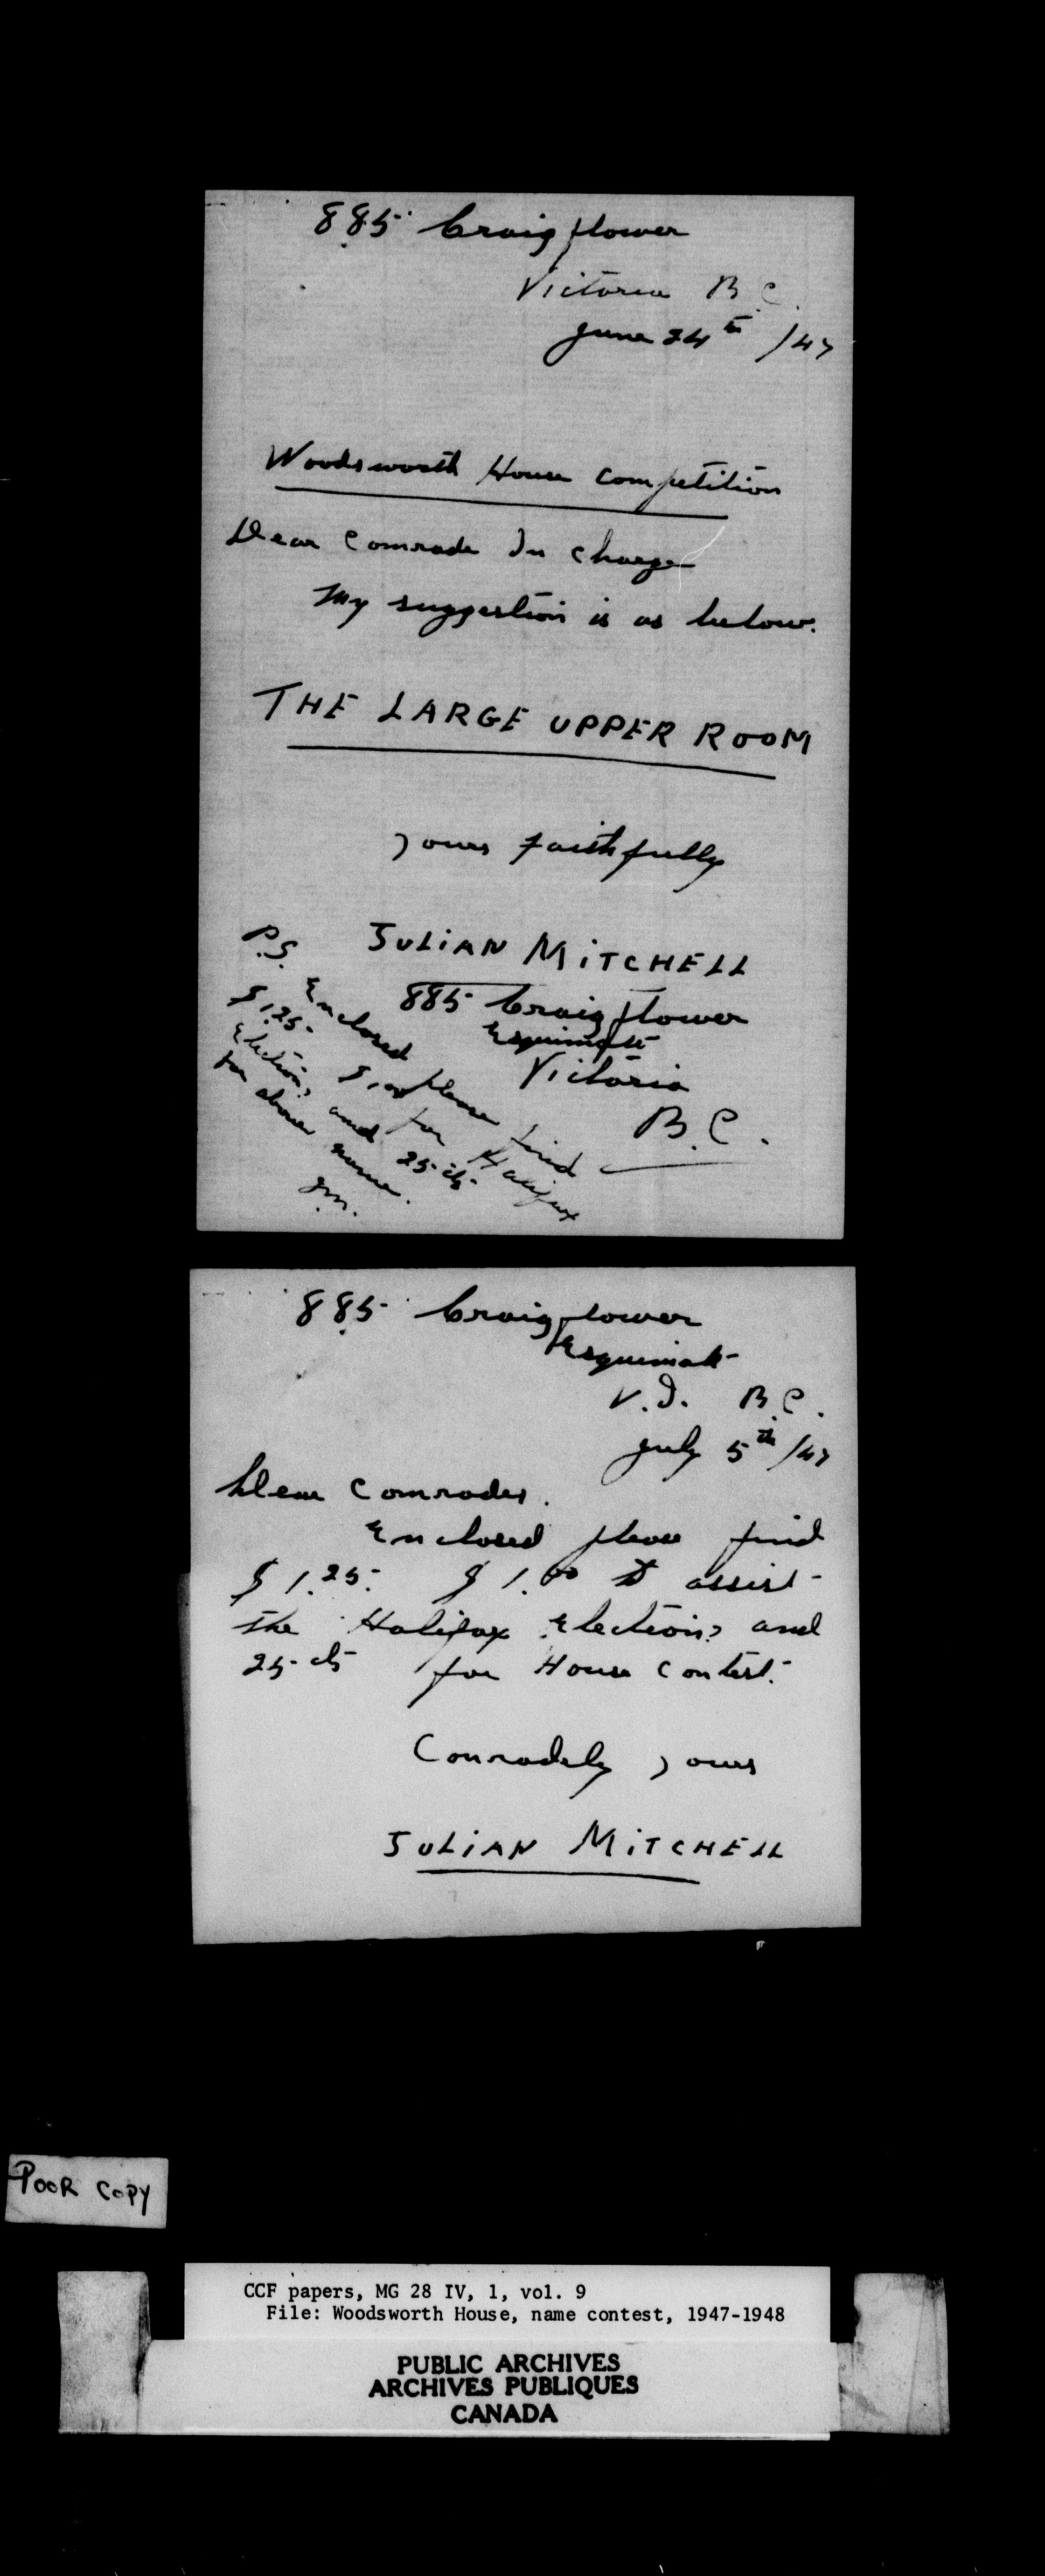 885 Craigflower
Victoria B.C.
June 24th /47
Woodsworth House Competition
Dear Comrade In Charge
My suggestion is as below.
THE LARGE UPPER ROOM
yours faithfully
JULIAN MITCHELL
885 Craigflower
Esquimalt
Victoria
B.C.
P.S. Enclosed please find
$1.25. $1.00 for Halifax
Elections and 25 cts
for above name.
J.M.
885 Craigflower
Esquimalt
V.I. B.C.
July 5th /47
Dear Comrades.
Enclosed please find
$1.25. $1.00 to assist
the Halifax Elections and
25 cts for House Contest.
Comradely yours
JULIAN MITCHELL
POOR COPY
CCF papers, MG 28 IV, 1, vol. 9
File: Woodsworth House, name contest, 1947-1948
PUBLIC ARCHIVES
ARCHIVES PUBLIQUES
CANADA